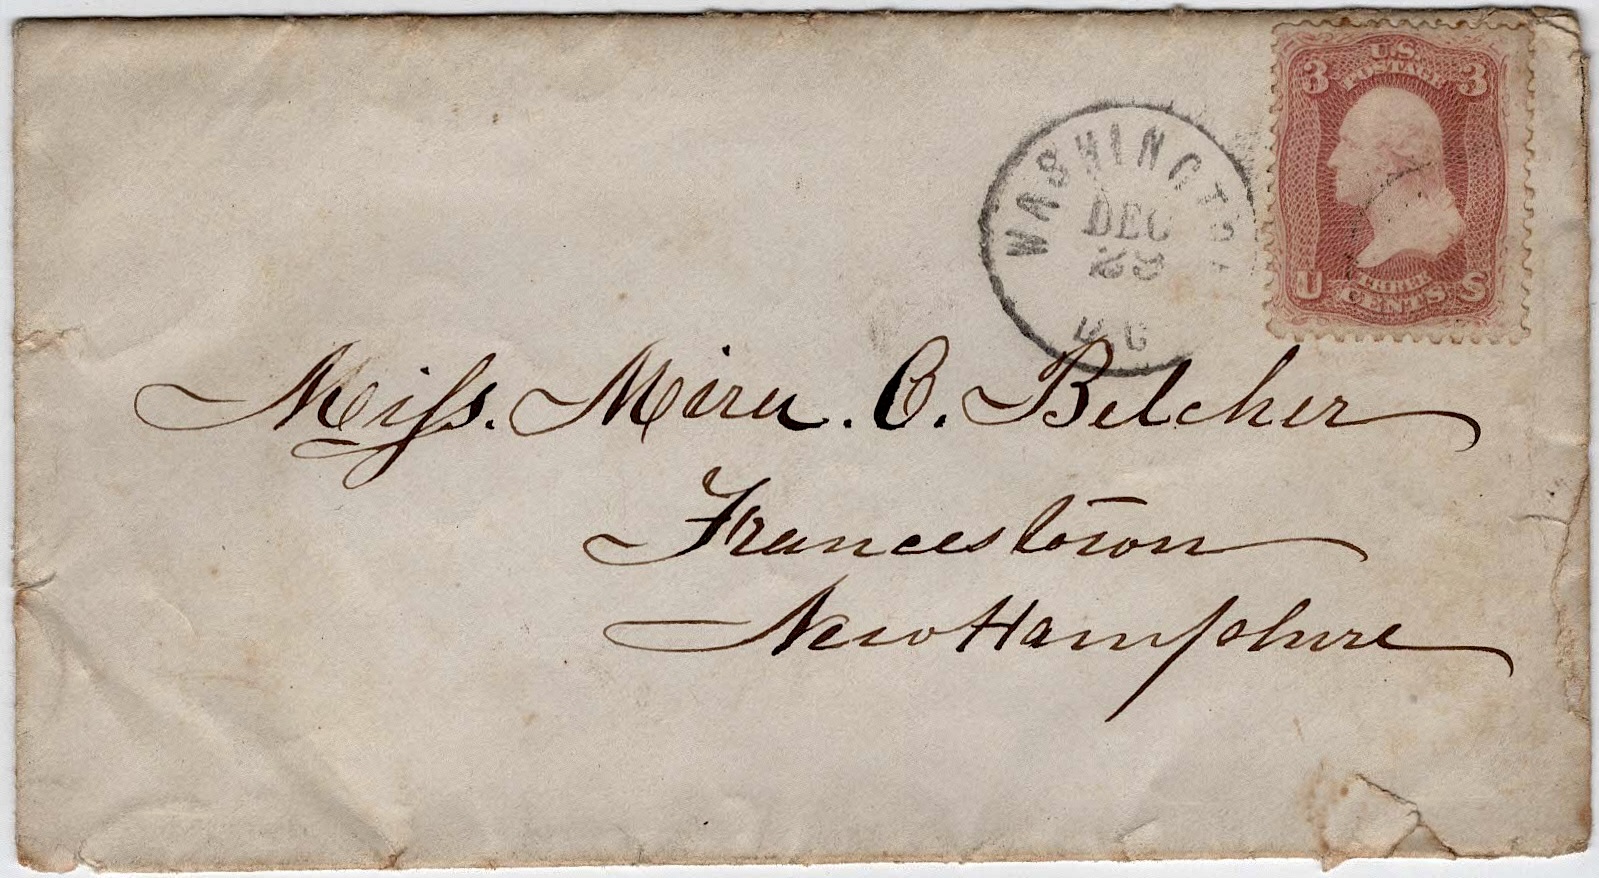 U.S.
POSTAGE
3 3
WASHINGTON
DEC
D C
U S
THREE
CENTS
Miss. Mira. C. Belcher
Francestown
New Hampshire